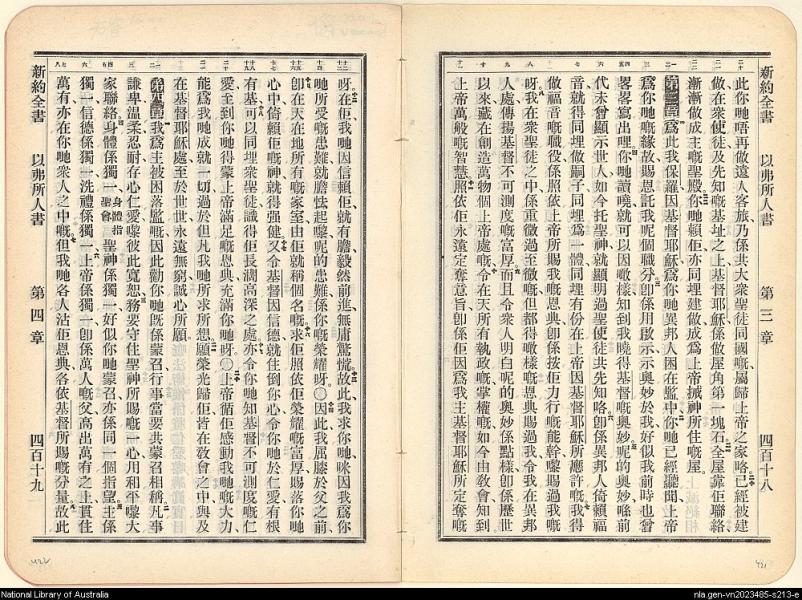 新約全書 以弗所人書 第三章 四百十八
此你哋唔再做遠人客旅乃係共大衆聖徒同國嘅屬歸上帝之家咯已經被建
做在衆使徒及先知嘅基址之上基督耶穌係做屋角第一塊石全屋靠佢聯絡
漸漸做成主嘅聖殿你哋賴佢亦同埋建做成爲上帝神所住嘅屋
第三章爲此我保羅因基督耶穌爲你哋異邦人困在監中你哋已經聽聞上帝
爲你哋嘅緣故賜恩託我呢個職分卽係用啟示示奧妙於我好似我前時也曾
畧畧寫出哩你哋讀嘵就可以因噉樣知到我曉得基督嘅奧妙呢的奧妙喺前
代未曾顯示世人如今托聖神就顯明過聖使徒共先知咯卽係異邦人倚賴福
音就得同埋做嗣子同埋爲一體同埋有份在上帝因基督耶穌所應許嘅我得
做福音嘅職役係照依上帝所賜我嘅恩典卽係按佢力行嘅能幹嚟賜過我嘅
呀我在衆聖徒之中係重微過至微嘅但都得噉樣嘅恩典賜過我令我在異邦
人處傳揚基督不可測度嘅富厚而且令衆人明白呢的奧妙係點樣卽係歷世
以來藏在創造萬物個上帝處嘅令在天所有執政嘅掌權嘅如今由敎會知到
上帝萬般嘅智慧照依佢永遠定奪意旨卽係佢因爲我主基督耶穌所定奪嘅
呀在佢我哋因信賴佢就有膽毅然前進無庸驚慌故此我求你哋咪因我爲你
哋所受嘅患難就膽怯起嚟呢的患難係你嘅榮耀呀〇因此我屈膝於父之前
卽在天在地所有嘅家室由佢就稱個名嘅求佢照依佢榮耀嘅富厚賜落你哋
心中倚賴佢嘅神就得强健又令基督因信德就住倒你心令你哋於仁愛有根
有基可以同埋衆聖徒識得佢長濶高深之處亦令你哋知基督不可測度嘅仁
愛至到你哋得蒙上帝滿足嘅恩典充滿你哋呀〇上帝循佢感動我哋嘅大力
能爲我哋成就一切過於但凡我哋所求所想願榮光歸佢皆在敎會之中與及
在基督耶穌處至於世世永遠無窮誠心所願
第四章我爲主被困落監嘅因此勸你哋既係蒙召行事當要共蒙召相稱凡事
謙卑溫柔忍耐存心仁愛嚟彼此寬恕務要守住聖神所賜嘅一心用和平嚟大
家聯絡身體係獨一身體指聖會聖神係獨一好似你哋蒙召亦係同一個指望主係
獨一信德係獨一洗禮係獨一上帝係獨一卽係萬人嘅父高出萬有之上貫住
萬有亦在你哋衆人之中嘅但我哋各人沾佢恩典各依基督所賜嘅分量故此
新約全書 以弗所人書 第四章 四百十九
National Library of Australia
nla.gen-vn2023485-s213-e